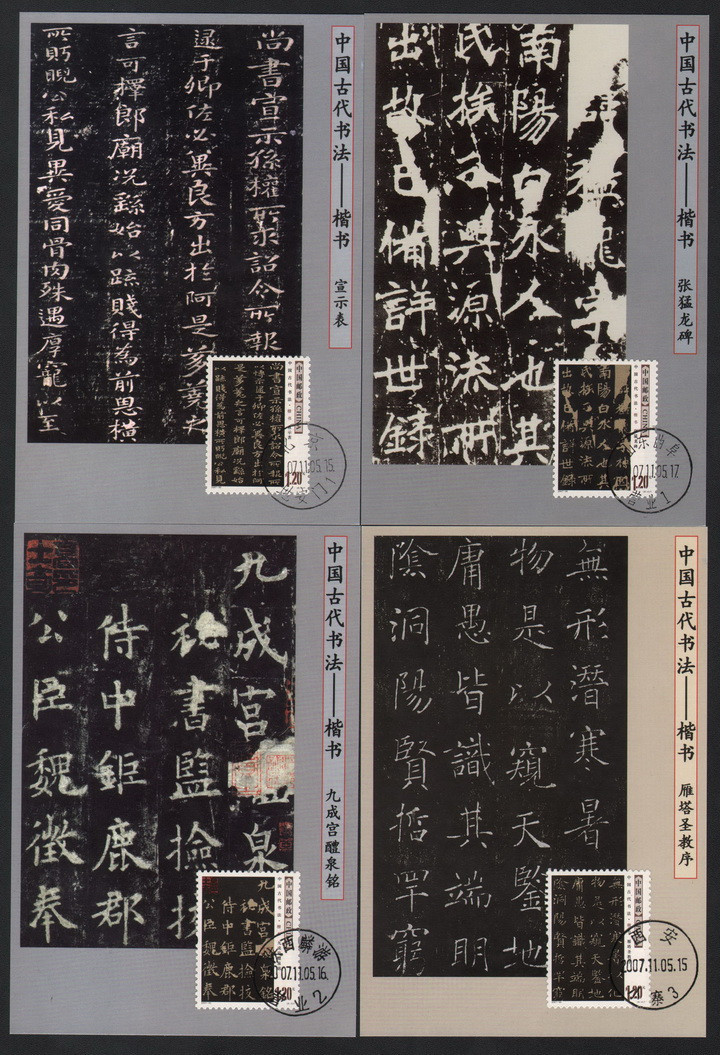 中国古代书法——楷书 宣示表
尚書宣示孫權所求詔令所報
逮于卿佐必冀良方出於阿是芻蕘之
言可擇郎廟況繇始以疏賤得為前恩橫
所眄睨公私見異愛同骨肉殊遇厚寵以至
中国邮政 CHINA
1.20
07.11.05.15.
中国古代书法——楷书 张猛龙碑
猛龍字
南陽白水人也其
氏族分興源流所
出故已備詳世錄
中国邮政 CHINA
1.20
山东曲阜
07.11.05.17.
1
中国古代书法——楷书 九成宫醴泉铭
九成宮醴泉
祕書監撿挍
侍中鉅鹿郡
公臣魏徵奉
中国邮政
1.20
陕西麟游
07.11.05.16.
2
中国古代书法——楷书 雁塔圣教序
無形潛寒暑
物是以窺天鑒地
庸愚皆識其端明
陰洞陽賢哲罕窮
中国邮政
1.20
西安
2007.11.05.15
寨3